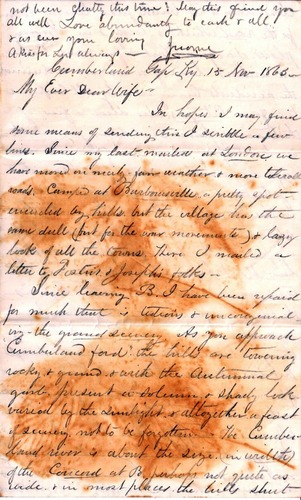 not been cheated this time? May this find you
all well. Love abundantly to each & all
& as ever your loving
A Kiss for Lys always — George
Cumberland Gap Ky. 15 Nov 1863 —
My Ever Dear Wife —
In hopes I may find
some means of sending this I scribble a few
lines. Since my last mailed at London, we
have moved on nicely, fair weather & more tolerable
roads. Camped at Barbourville, a pretty spot
circled by hills, but the village has the
same dull (but for the war movements) & lazy
look of all the towns. There I mailed a
letter to & Joseph's folks —
Since leaving B. I have been repaid
for much that is tedious & uncongenial
by the grand scenery. As you approach
Cumberland ford the hills are towering
rocky & grand & with the Autumnal
garb, present a solemn & shady look
varied by the sunlight & altogether a feast
of scenery not to be forgotten — The Cumber-
land river is about the size in width
of the Concord at not quite as
wide, & in most places the hills shut